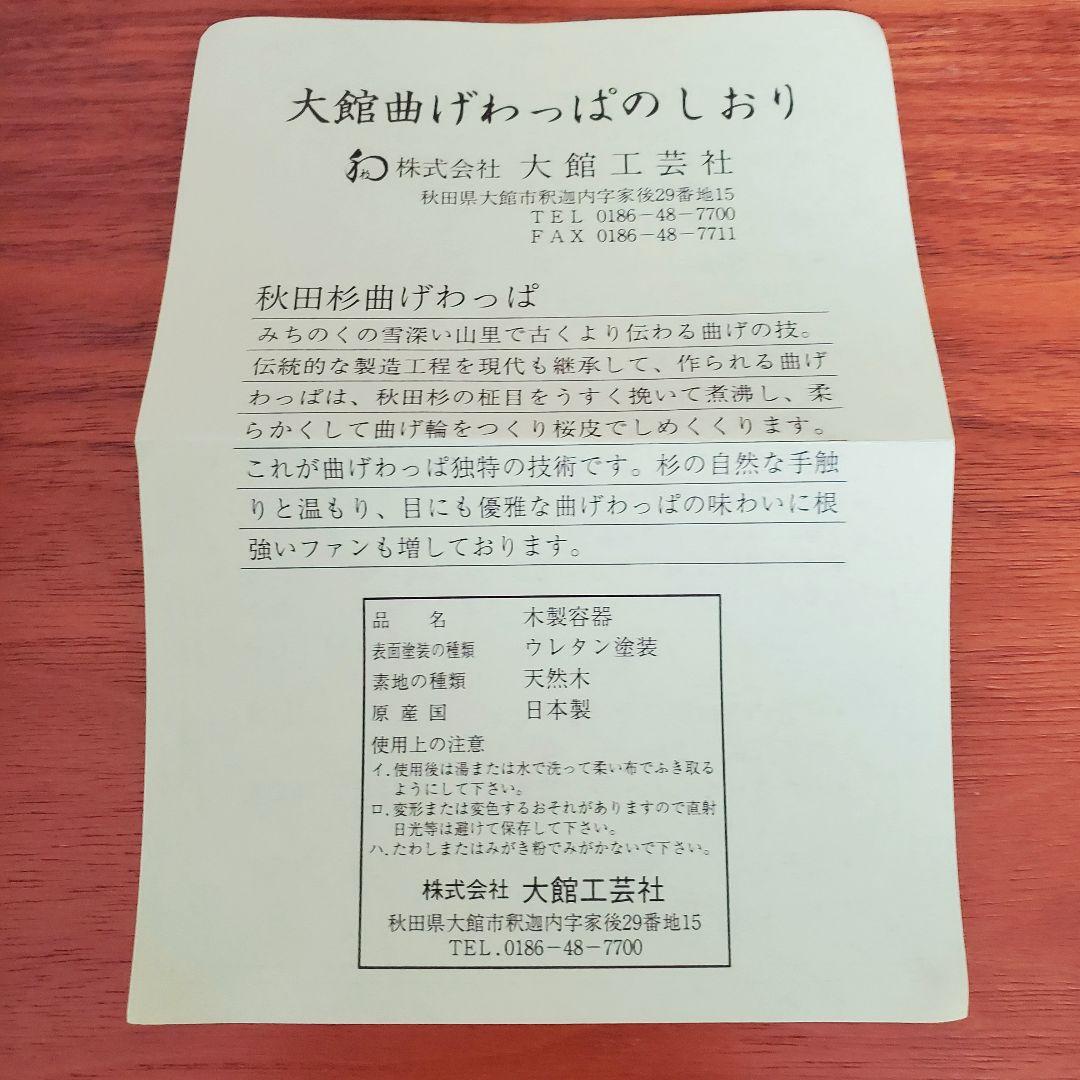 大館曲げわっぱのしおり
株式会社 大館工芸社
秋田県大館市釈迦内字家後29番地15
TEL 0186-48-7700
FAX 0186-48-7711
秋田杉曲げわっぱ
みちのくの雪深い山里で古くより伝わる曲げの技。
伝統的な製造工程を現代も継承して、作られる曲げ
わっぱは、秋田杉の柾目をうすく挽いて煮沸し、柔
らかくして曲げ輪をつくり桜皮でしめくくります。
これが曲げわっぱ独特の技術です。杉の自然な手触
りと温もり、目にも優雅な曲げわっぱの味わいに根
強いファンも増しております。
品名 木製容器
表面塗装の種類 ウレタン塗装
素地の種類 天然木
原産国 日本製
使用上の注意
イ.使用後は湯または水で洗って柔い布でふき取る
ようにして下さい。
ロ.変形または変色するおそれがありますので直射
日光等は避けて保存して下さい。
ハ.たわしまたはみがき粉でみがかないで下さい。
株式会社 大館工芸社
秋田県大館市釈迦内字家後29番地15
TEL.0186-48-7700